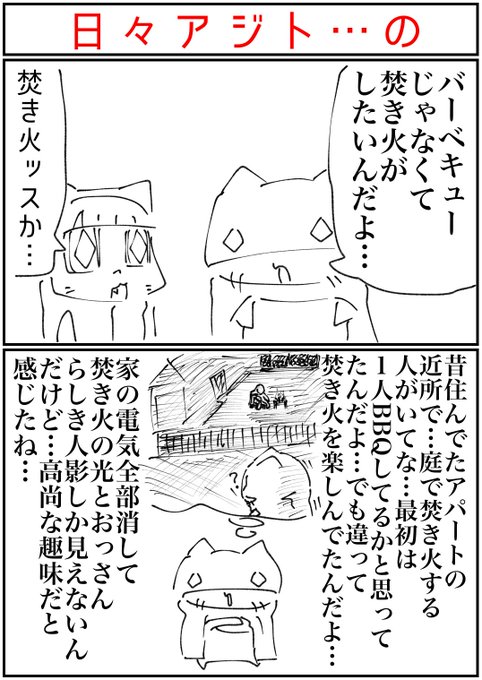 日々アジト…の
バーベキュー
じゃなくて
焚き火が
したいんだよ…
焚き火ッスか…
昔住んでたアパートの
近所で…庭で焚き火する
人がいてな…最初は
1人BBQしてるかと思って
たんだよ…でも違って
焚き火を楽しんでたんだよ…
?
家の電気全部消して
焚き火の光とおっさん
らしき人影しか見えないん
だけど…高尚な趣味だと
感じたね…